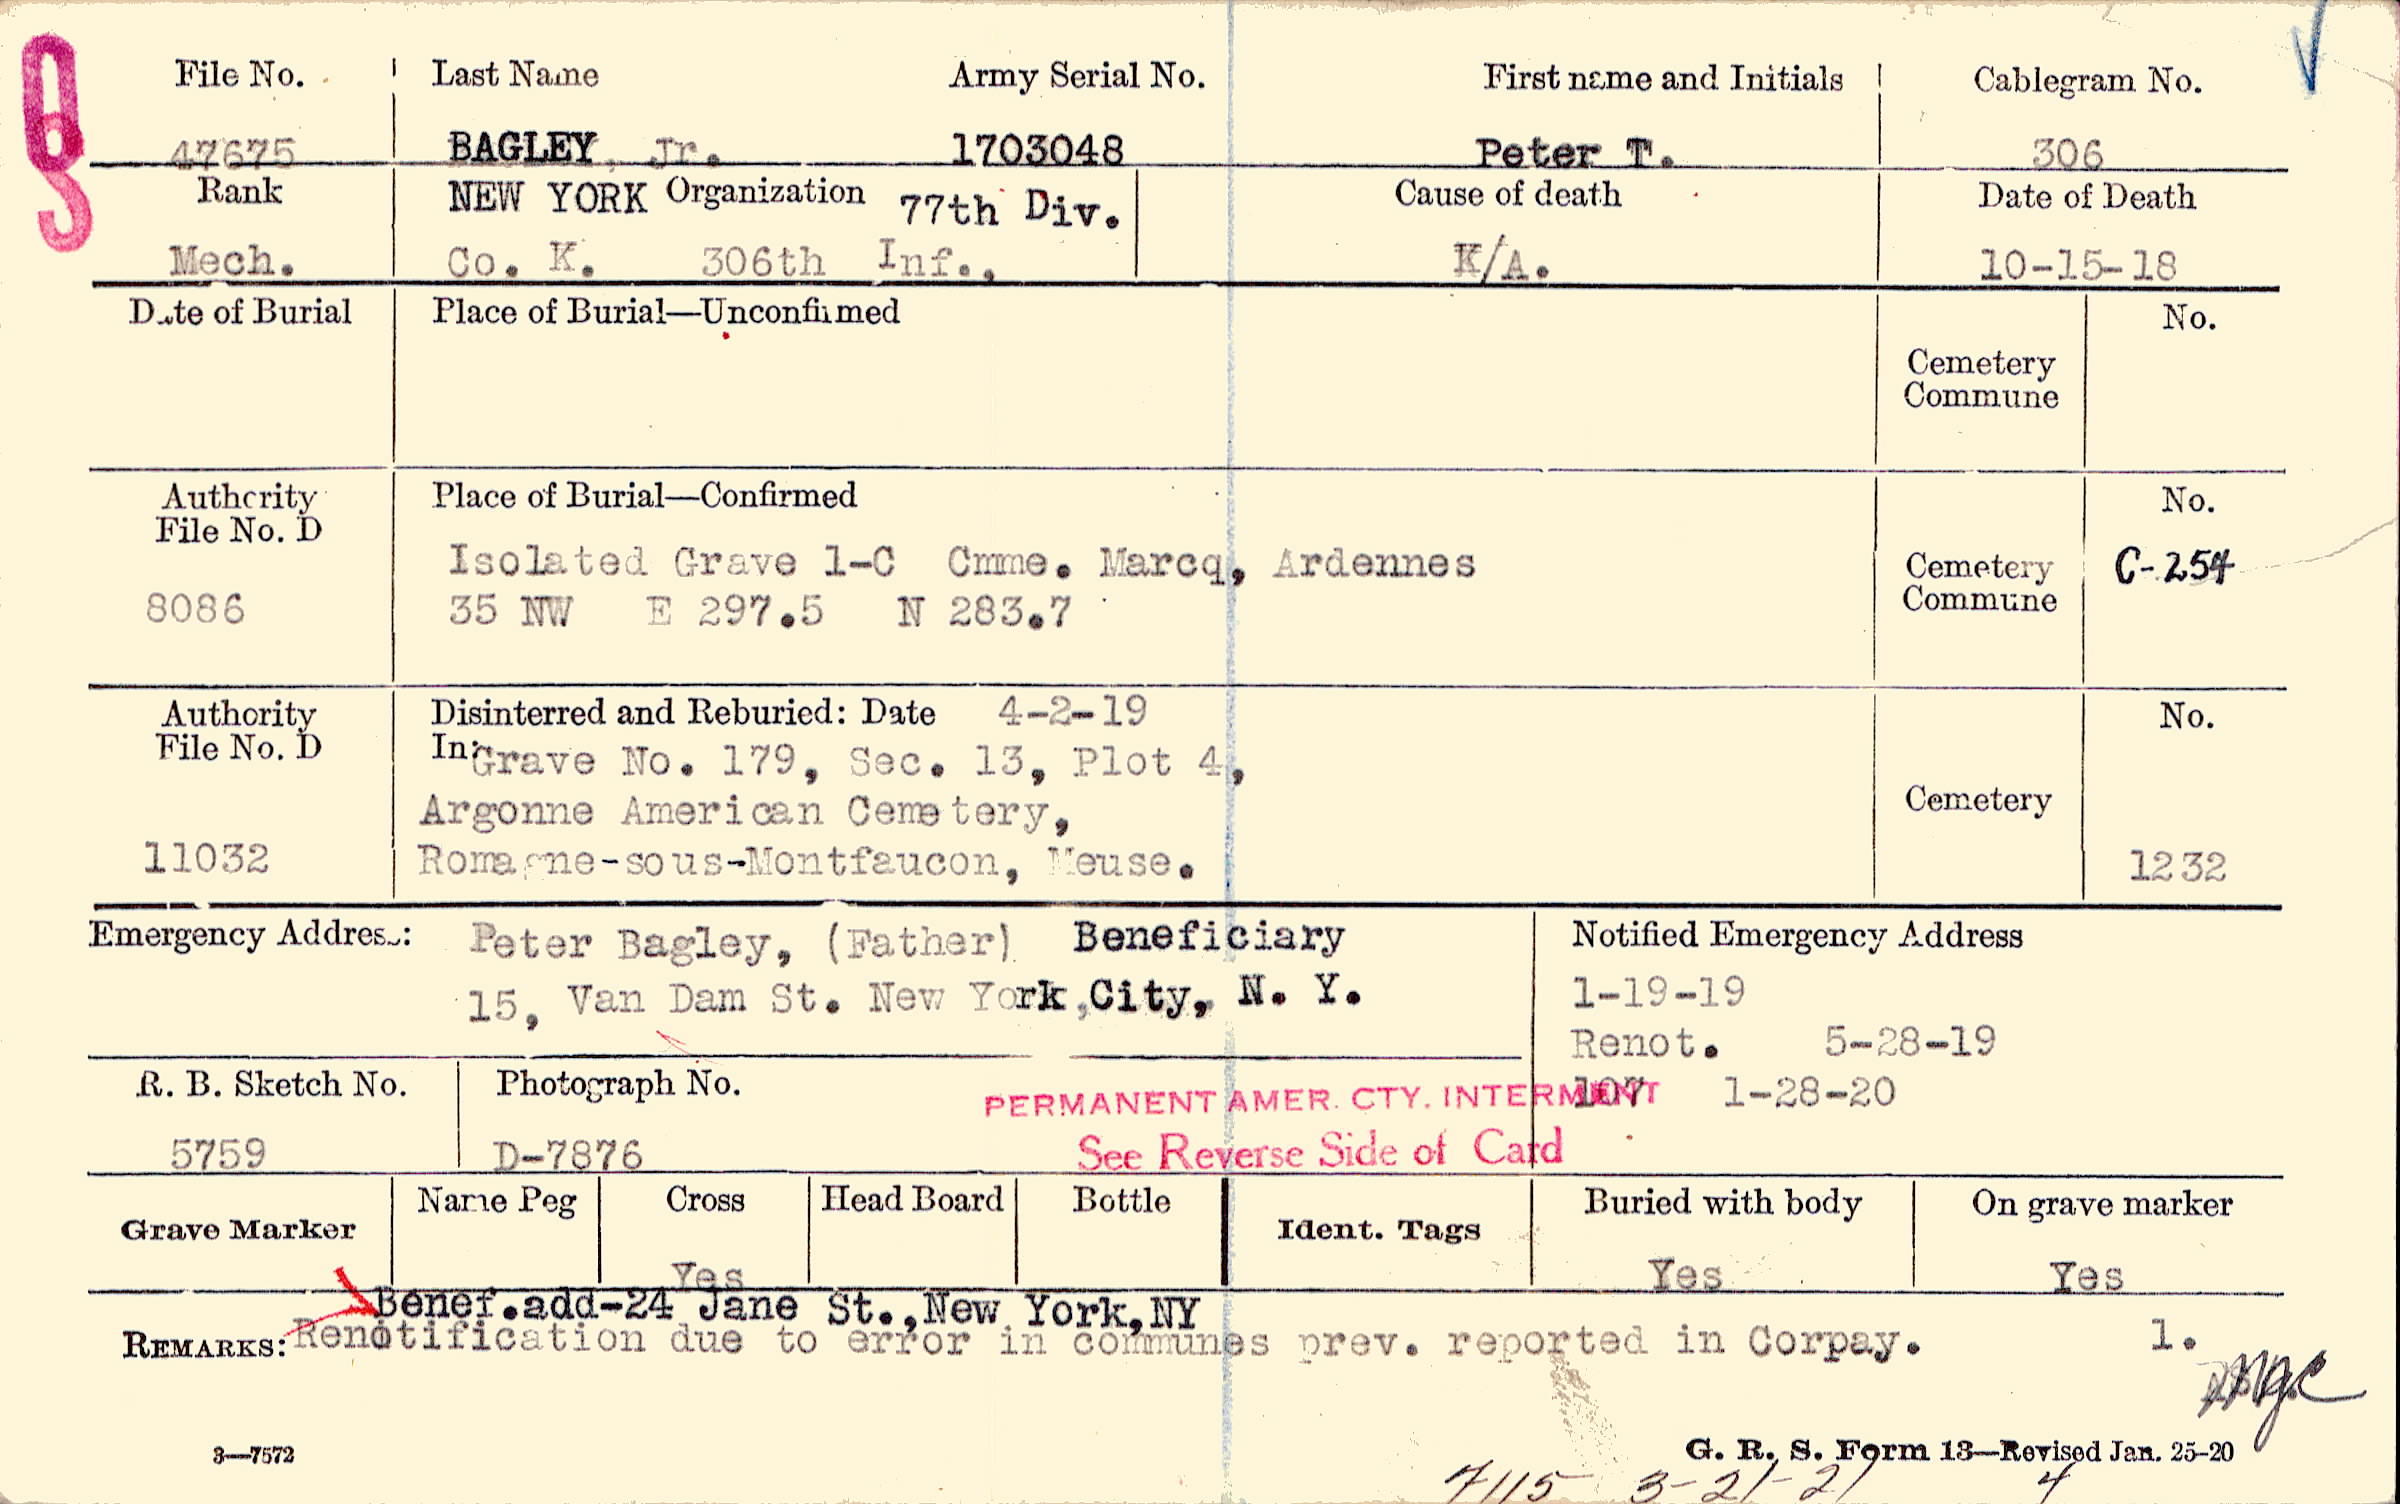 File No. Last Name Army Serial No. First name and Initials Cablegram No.
47675 BAGLEY, Jr. 1703048 Peter T. 306
Rank NEW YORK Organization 77th Div. Cause of death Date of Death
Mech. Co. K. 306th Inf., K/A. 10-15-18
Date of Burial Place of Burial—Unconfirmed No.
Cemetery
Commune
Authority Place of Burial—Confirmed No.
File No. D
Isolated Grave 1-C Cmme. Marcq, Ardennes Cemetery C-254
8086 35 NW E 297.5 N 283.7 Commune
Authority Disinterred and Reburied: Date 4-2-19 No.
File No. D In: Grave No. 179, Sec. 13, Plot 4,
Argonne American Cemetery, Cemetery
11032 Romagne-sous-Montfaucon, Meuse. 1232
Emergency Address: Peter Bagley, (Father) Beneficiary Notified Emergency Address
15, Van Dam St. New York, City, N. Y. 1-19-19
Renot. 5-28-19
R. B. Sketch No. Photograph No. PERMANENT AMER. CTY. INTERMENT 107 1-28-20
5759 D-7876 See Reverse Side of Card
Grave Marker Name Peg Cross Head Board Bottle Ident. Tags Buried with body On grave marker
Yes Yes Yes
Benef.add-24 Jane St.,New York,NY
REMARKS: Renotification due to error in communes prev. reported in Corpay. 1.
3—7572 G. R. S. Form 13—Revised Jan. 25-20
7115 3-21-21 4